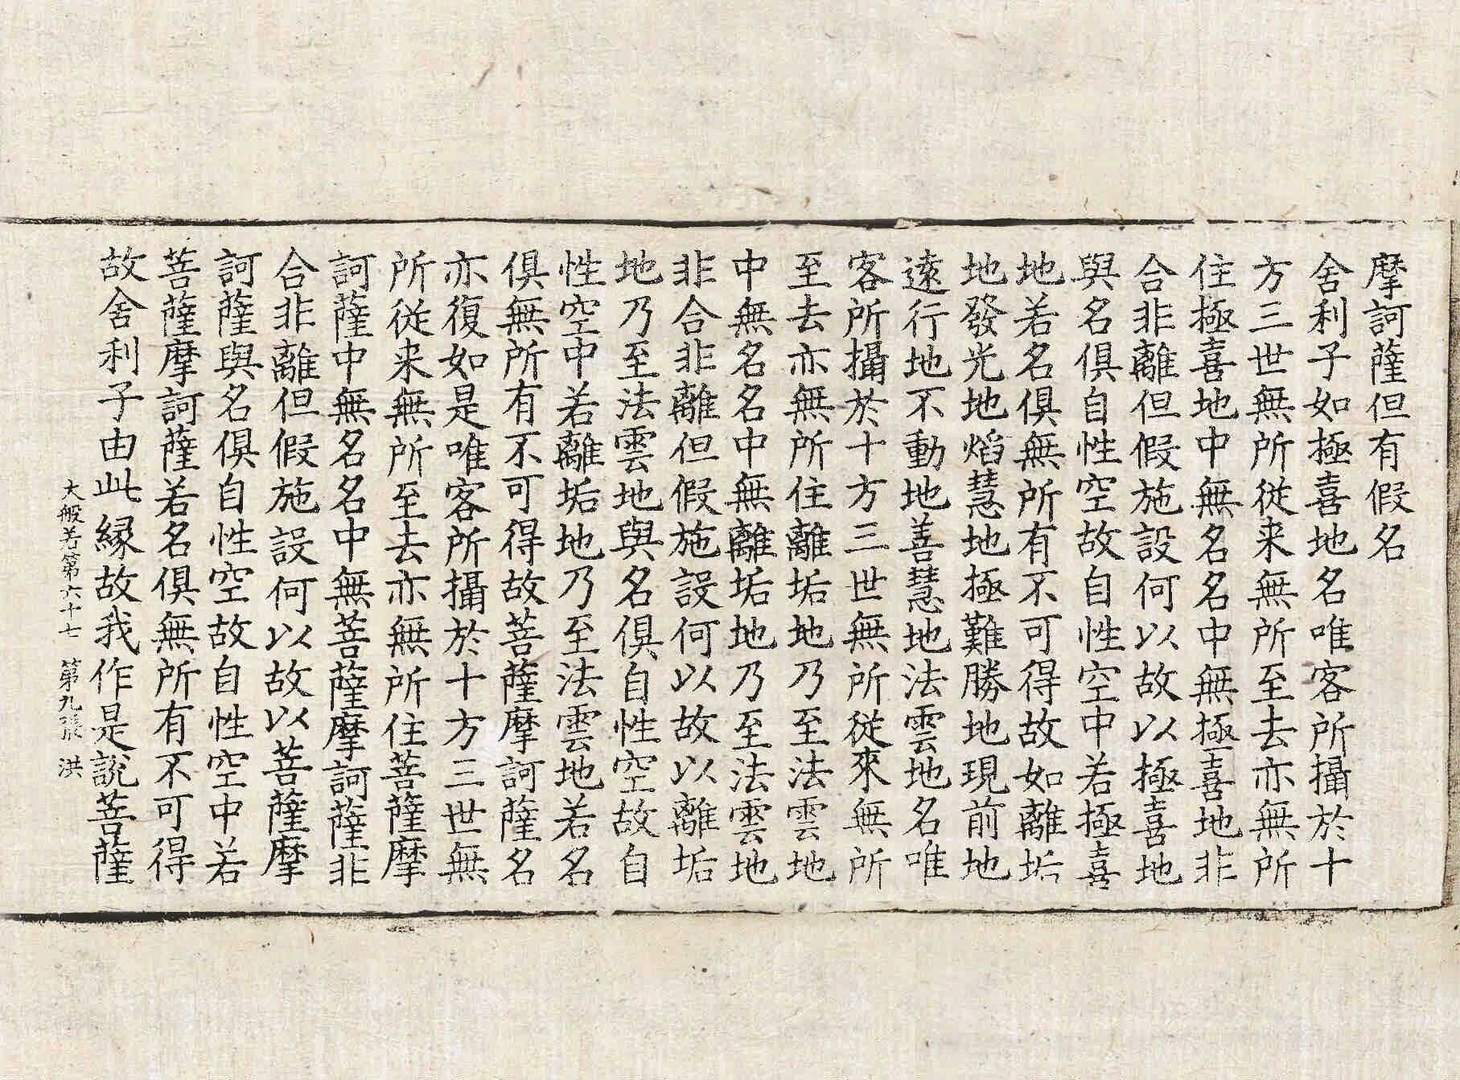 摩訶薩但有假名
舍利子如極喜地名唯客所攝於十
方三世無所從来無所至去亦無所
住極喜地中無名名中無極喜地非
合非離但假施設何以故以極喜地
與名俱自性空故自性空中若極喜
地若名俱無所有不可得故如離垢
地發光地焰慧地極難勝地現前地
遠行地不動地善慧地法雲地名唯
客所攝於十方三世無所從來無所
至去亦無所住離垢地乃至法雲地
中無名名中無離垢地乃至法雲地
非合非離但假施設何以故以離垢
地乃至法雲地與名俱自性空故自
性空中若離垢地乃至法雲地若名
俱無所有不可得故菩薩摩訶薩名
亦復如是唯客所攝於十方三世無
所從来無所至去亦無所住菩薩摩
訶薩中無名名中無菩薩摩訶薩非
合非離但假施設何以故以菩薩摩
訶薩與名俱自性空故自性空中若
菩薩摩訶薩若名俱無所有不可得
故舍利子由此緣故我作是說菩薩
大般若第六十七 第九張 洪